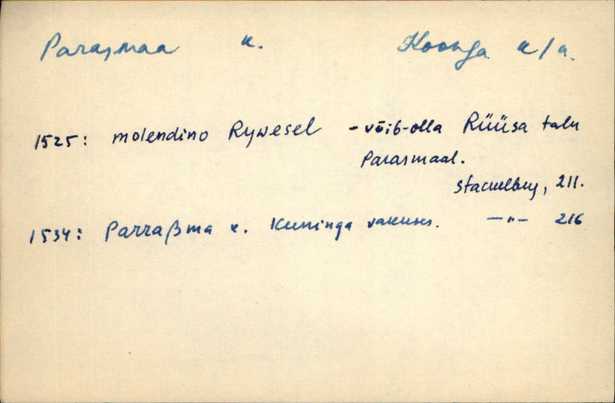 Parasmaa k. Koonga k/n.
1525: molendino Rywesel - võib-olla Rüüsa talu
Parasmaal.
Stackelberg, 211.
1534: Parraßma k. Kuninga vakuses. —"— 216